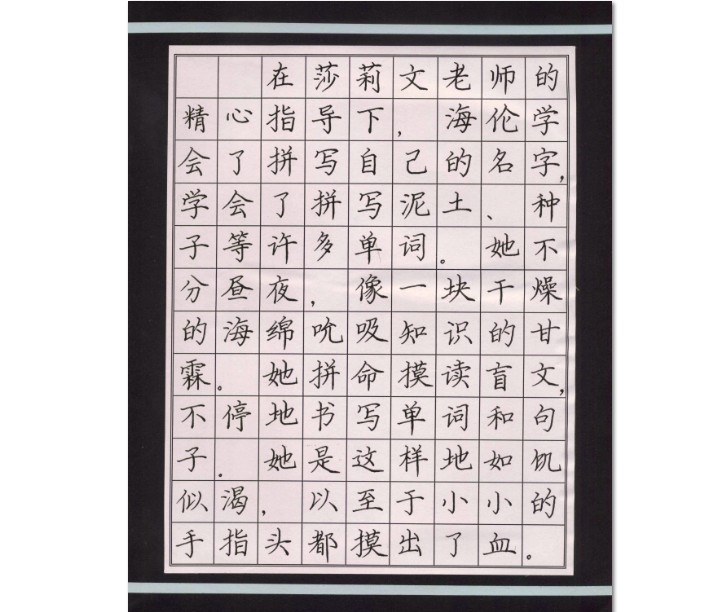 在莎莉文老师的
精心指导下，海伦学
会了拼写自己的名字，
学会了拼写泥土、种
子等许多单词。她不
分昼夜，像一块干燥
的海绵吮吸知识的甘
霖。她拼命摸读盲文，
不停地书写单词和句
子。她是这样地如饥
似渴，以至于小小的
手指头都摸出了血。